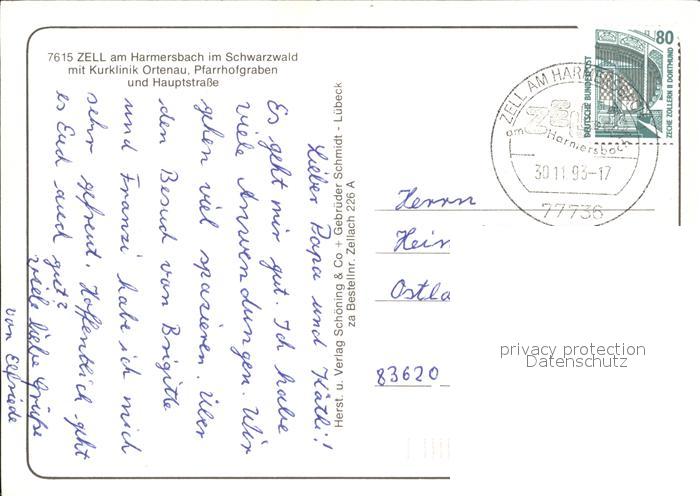 7615 ZELL am Harmersbach im Schwarzwald
mit Kurklinik Ortenau, Pfarrhofgraben
und Hauptstraße
Lieber Papa und Käthi!
Es geht mir gut. Ich habe
viele Anwendungen. Wir
gehen viel spazieren. Über
den Besuch von Brigitte
und Franzi habe ich mich
sehr gefreut. Hoffentlich geht
es Euch auch gut?
viele liebe Grüße
von Elfriede
Herst. u. Verlag Schöning & Co + Gebrüder Schmidt - Lübeck
za Bestellnr. Zellach 226 A
80
DEUTSCHE BUNDESPOST
ZECHE ZOLLERN II DORTMUND
ZELL AM HARMERSBACH
am Harmersbach
30.11.93-17
77736
Herrn
Hein
Ostla
83620
privacy protection
Datenschutz